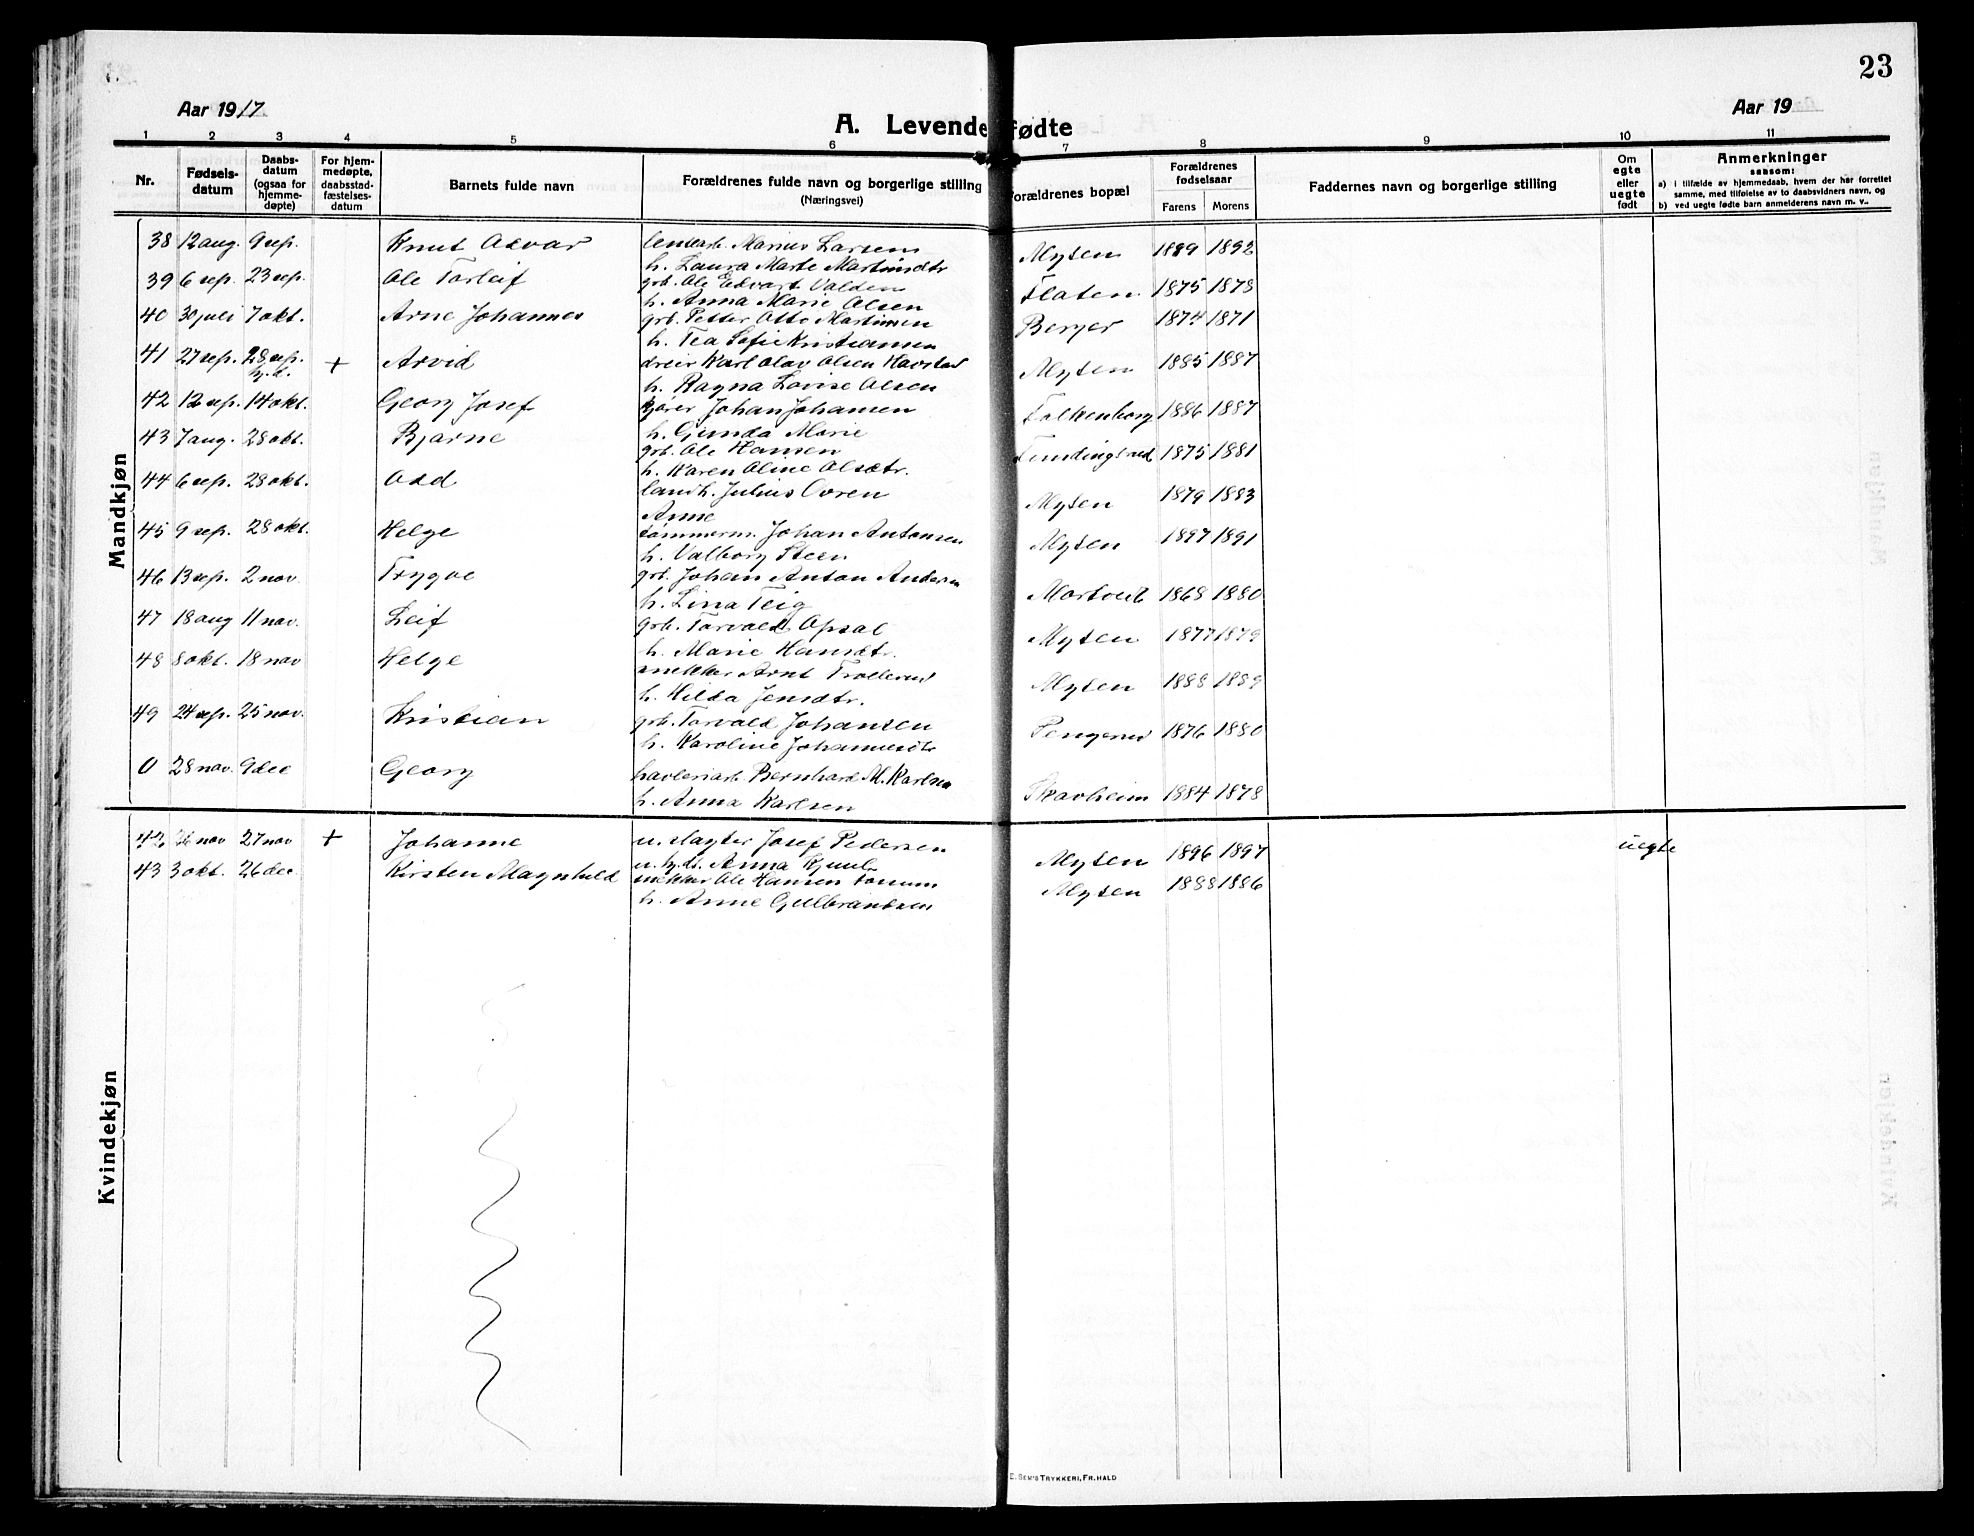 23
Aar 1917
A. Levendefødte
Aar 19
1 2 3 4 5 6 7 8 9 10 11
Nr. Fødsels-datum Daabs-datum (ogsaa for hjemme-døpte) For hjem-medøpte, daabsstad-fæstelses-datum Barnets fulde navn Forældrenes fulde navn og borgerlige stilling (Næringsvei) Forældrenes bopæl Forældrenes fødselsaar Farens Morens Faddernes navn og borgerlige stilling Om egte eller uegte født Anmerkninger saasom:
a) i tilfælde av hjemmedaab, hvem der har forrettet samme, med tilføielse av to daabsvidners navn, og
b) ved uegte fødte barn anmelderens navn m. v..
Mandkjøn
38 12 aug. 9 sep. Knut Marius Larsen Mysen 1889 1892
h. Laura Marte Martinsdtr
39 6 sep. 23 sep. Ole Torleif grb. Ole Edvart Valden Flaten 1875 1878
h. Anna Marie Olsen
40 30 juli 7 okt. Arne Johannes grb. Petter Otto Martinsen Berger 1874 1871
h. Tea Sofie Kristiansen
41 27 sep. 28 sep. h.d. + Arvid dreier Karl Olav Olsen Mysen 1885 1887
h. Ragna Lovise Olsen
42 12 sep. 14 okt. Georg Josef kjører Johan Johansen Falkenborg 1886 1887
h. Gunda Marie
43 7 aug. 28 okt. Bjarne grb. Ole Hansen 1875 1881
h. Karen Oline Olsdtr.
44 6 sep. 28 okt. Odd landh. Julius Mysen 1879 1883
Anne
45 9 sep. 28 okt. Helge tømmerm. Johan Antonsen Mysen 1897 1891
h. Valborg Steen
46 13 sep. 2 nov. Trygve grb. Johan Anton Andersen 1868 1880
h. Lina Teig
47 18 aug 11 nov. Leif grb. Torvald Opsal Mysen 1877 1879
h. Marie Hansdtr.
48 8 okt. 18 nov Helge snekker Arnt Mysen 1888 1889
h. Hilda Jensdtr.
49 24 sep. 25 nov. Kristian grb. Torvald Johansen Pengerud 1876 1880
h. Karoline Johannesdtr
0 28 nov. 9 dec Georg Bernhard M. Karlsen Skavheim 1884 1878
h. Anna Karlsen
Kvindekjøn
42 26 nov 27 nov + Johanne u. slagter Josef Pedersen Mysen 1896 1897 uegte
u. Anna
43 3 okt. 26 dec. Kirsten Magnhild snekker Ole Hansen Mysen 1888 1886
h. Anne Gulbrandsen
E. SEM'S TRYKKERI, FR.HALD